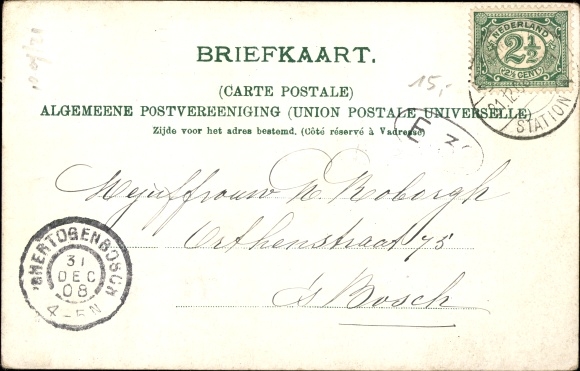 BRIEFKAART.
(CARTE POSTALE)
ALGEMEENE POSTVEREENIGING (UNION POSTALE UNIVERSELLE)
Zijde voor het adres bestemd. (Côté réservé à Vadresse)
NEDERLAND
2½
2½ CENT
STATION
15,-
Mejuffrouw N. Roborgh
Orthenstraat 75
's Bosch
'SHERTOGENBOSCH
31
DEC
08
4-5N